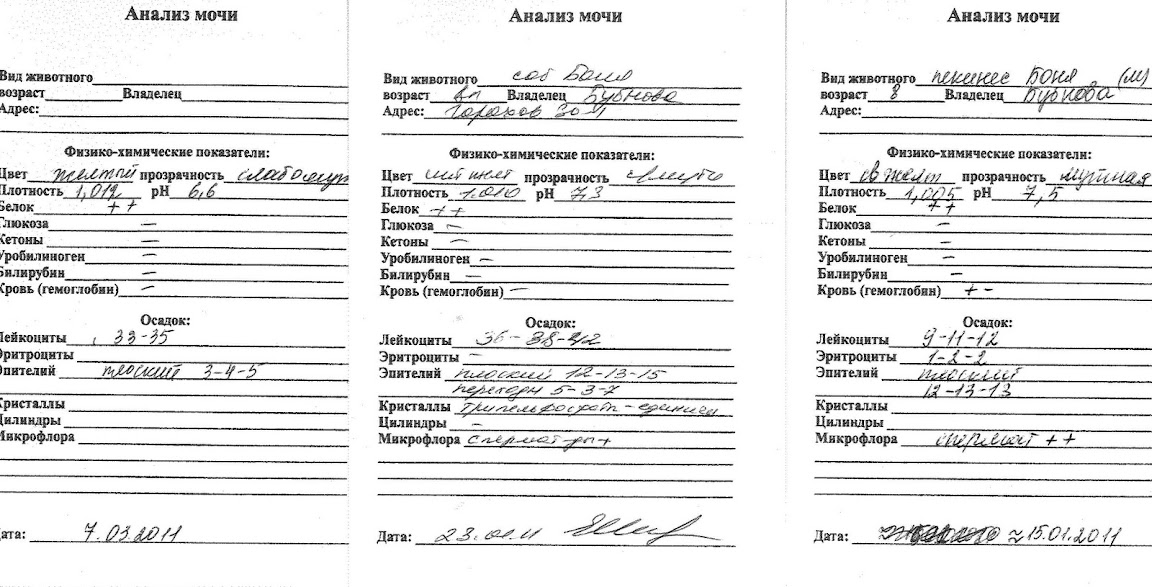 Анализ мочи
Вид животного
возраст Владелец
Адрес:
Физико-химические показатели:
Цвет желтый прозрачность
Плотность 1,012 рН 6,6
Белок ++
Глюкоза —
Кетоны —
Уробилиноген —
Билирубин —
Кровь (гемоглобин) —
Осадок:
Лейкоциты 33-35
Эритроциты
Эпителий плоский 3-4-5
Кристаллы
Цилиндры
Микрофлора
Дата: 7.03.2011
Анализ мочи
Вид животного соб Боня
возраст Владелец Бубнова
Адрес:
Физико-химические показатели:
Цвет прозрачность
Плотность 1.010 рН 7,3
Белок ++
Глюкоза —
Кетоны —
Уробилиноген —
Билирубин —
Кровь (гемоглобин) —
Осадок:
Лейкоциты 36-38-42
Эритроциты —
Эпителий плоский 12-13-15
переходн 5-3-7
Кристаллы
Цилиндры —
Микрофлора
Дата:
Анализ мочи
Вид животного пекинес Боня (м)
возраст 8 Владелец Бубнова
Адрес:
Физико-химические показатели:
Цвет св желт прозрачность мутная
Плотность 1,005 рН 7,5
Белок ++
Глюкоза —
Кетоны —
Уробилиноген —
Билирубин —
Кровь (гемоглобин) + -
Осадок:
Лейкоциты 9-11-12
Эритроциты 1-2-2
Эпителий плоский
12-13-13
Кристаллы
Цилиндры
Микрофлора ++
Дата: ≈ 15.01.2011